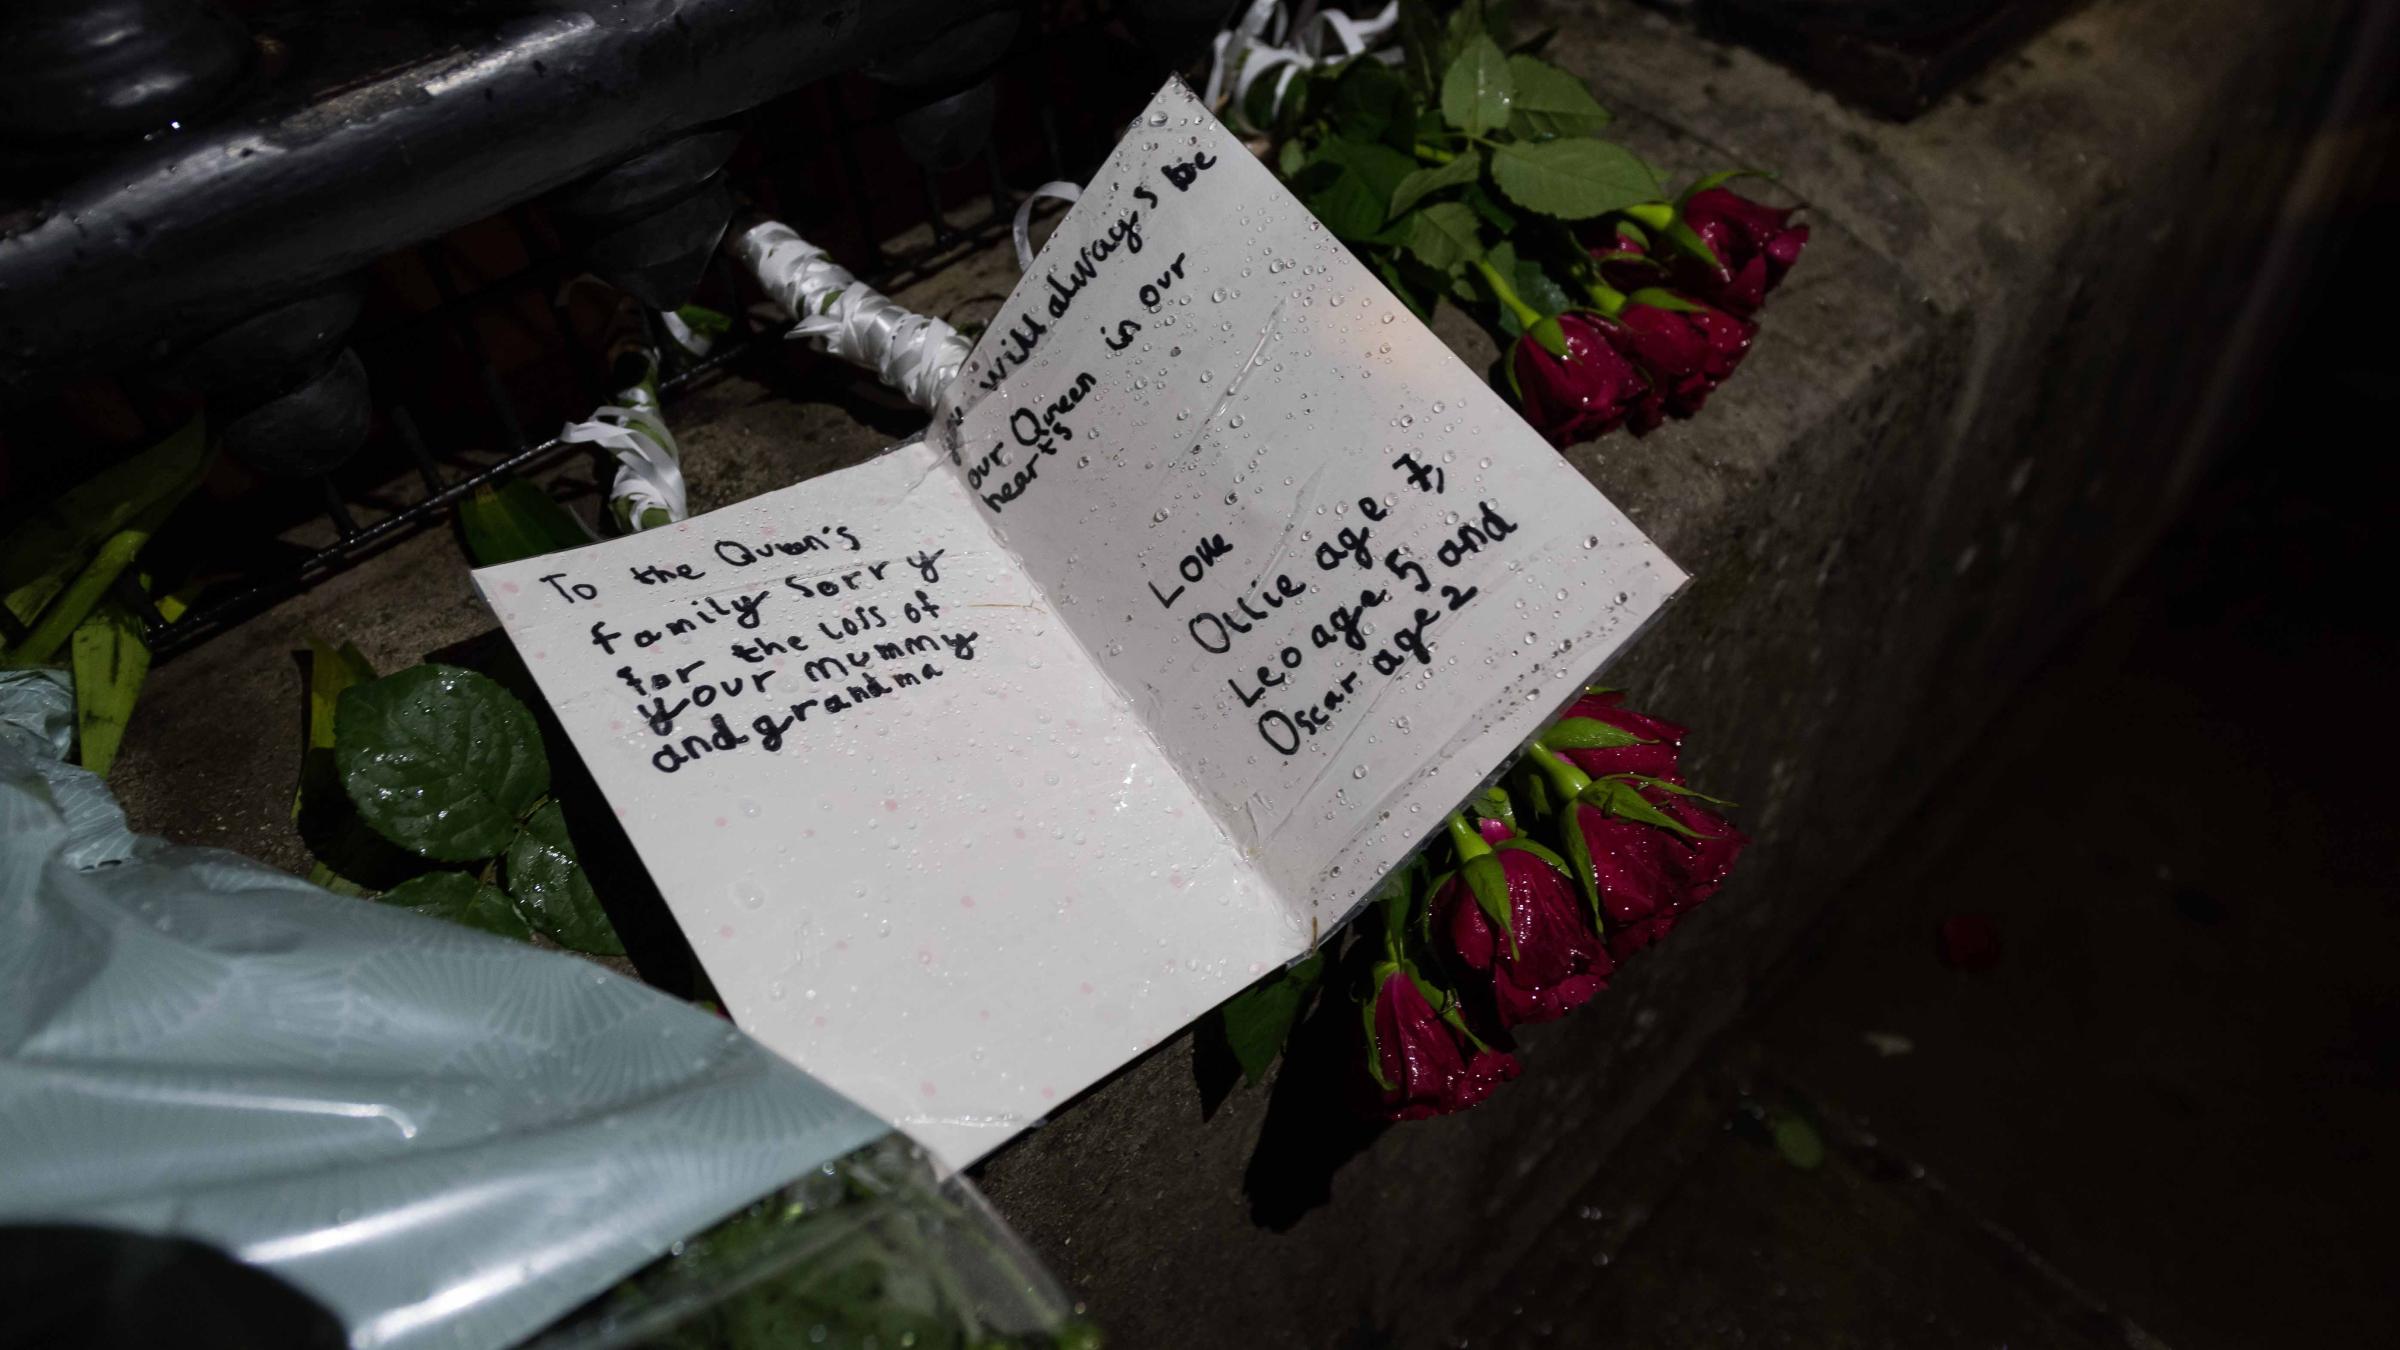 To the Queen's
family sorry
for the loss of
your mummy
and grandma
will always be
our Queen in our
heart's
Love
Ollie age 7,
Leo age 5 and
Oscar age 2